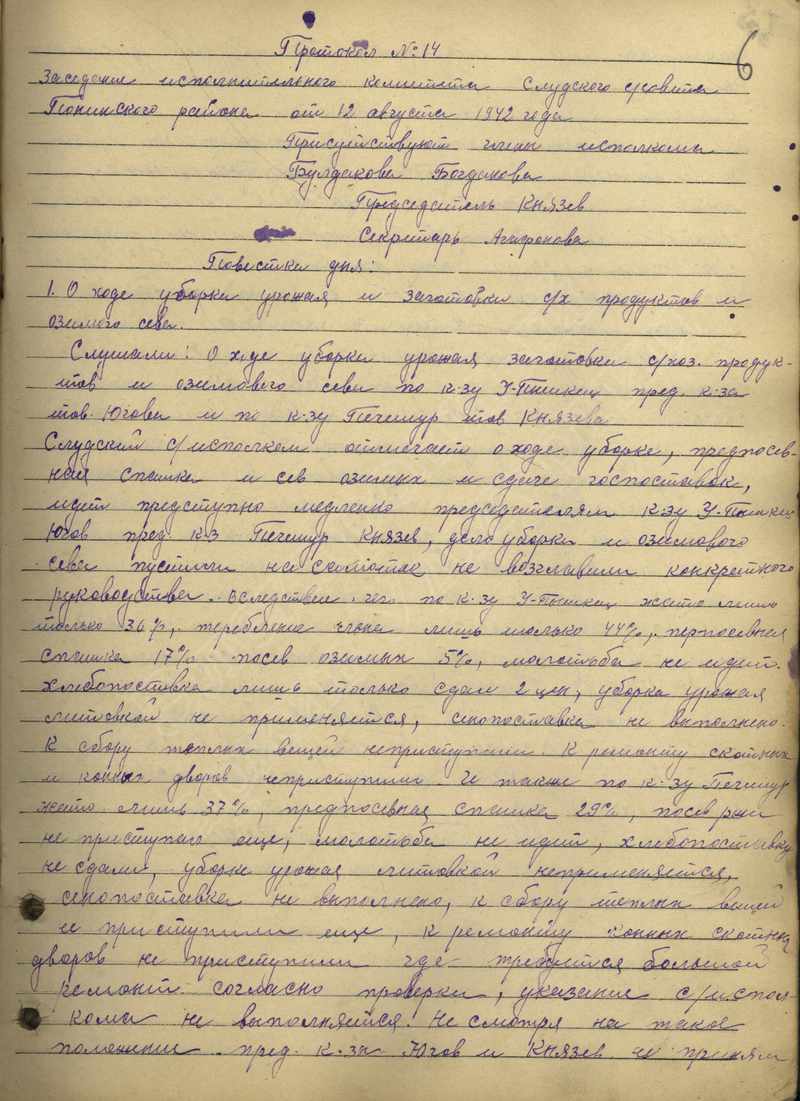 6
Протокол №14
Заседание исполнительного комитета Слудского с/совета
Пышкинского района от 12 августа 1942 года
Присутствуют члены исполкома
Булдакова Богданова
Председатель Князев
Секретарь Агафонова
Повестка дня:
1. О ходе уборки урожая и заготовки с/х продуктов и
озимого сева.
Слушали: О ходе уборки урожая заготовки с/хоз. продук-
тов и озимового сева по к-зу У-Пышкец пред. к-за
тов. Югова и по к-зу Печешур тов Князева
Слудский с/исполком отмечает о ходе уборке, предпосев-
ная спашка и сев озимых и сдаче госпоставок,
идет предступно медленно председателям к-зу У-Пышкец
Югов пред к-з Печешур Князев, дело уборки и озимового
сева пустили на самотек не возглавили конкретного
руководства. Вследствии чего по к-зу У-Пышкец жато лишь
только 36%, теребление льна лишь только 44%, перпосевная
спашка 17% посев озимых 5%, молотьба не идет.
хлебопоставка лишь только сдали 2 цен, уборка урожая
литовкой не применяется, сенопоставка не выполнено.
К сбору теплых вещей неприступили. К ремонту скотных
и конных дворов неприступили. И также по к-зу Печешур
жато лишь 37%, предпосевная спашка 29%, посев ржи
не приступали еще, молотьба не идет, хлебопоставку
не сдали, уборка урожая литовкой неприменяется,
сенопоставка не выполнено, к сбору теплых вещей
не приступили еще, к ремонту конных скотных
дворов не приступили где требуется большой
ремонт согласно проверки, указание с/испол-
кома не выполняется. Не смотря на такое
положение пред. к-зн Югов и Князев не приняли